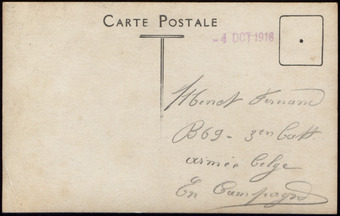 CARTE POSTALE
- 4 OCT 1918
Fernand
B69 - 3en batt
armée belge
En Campagne